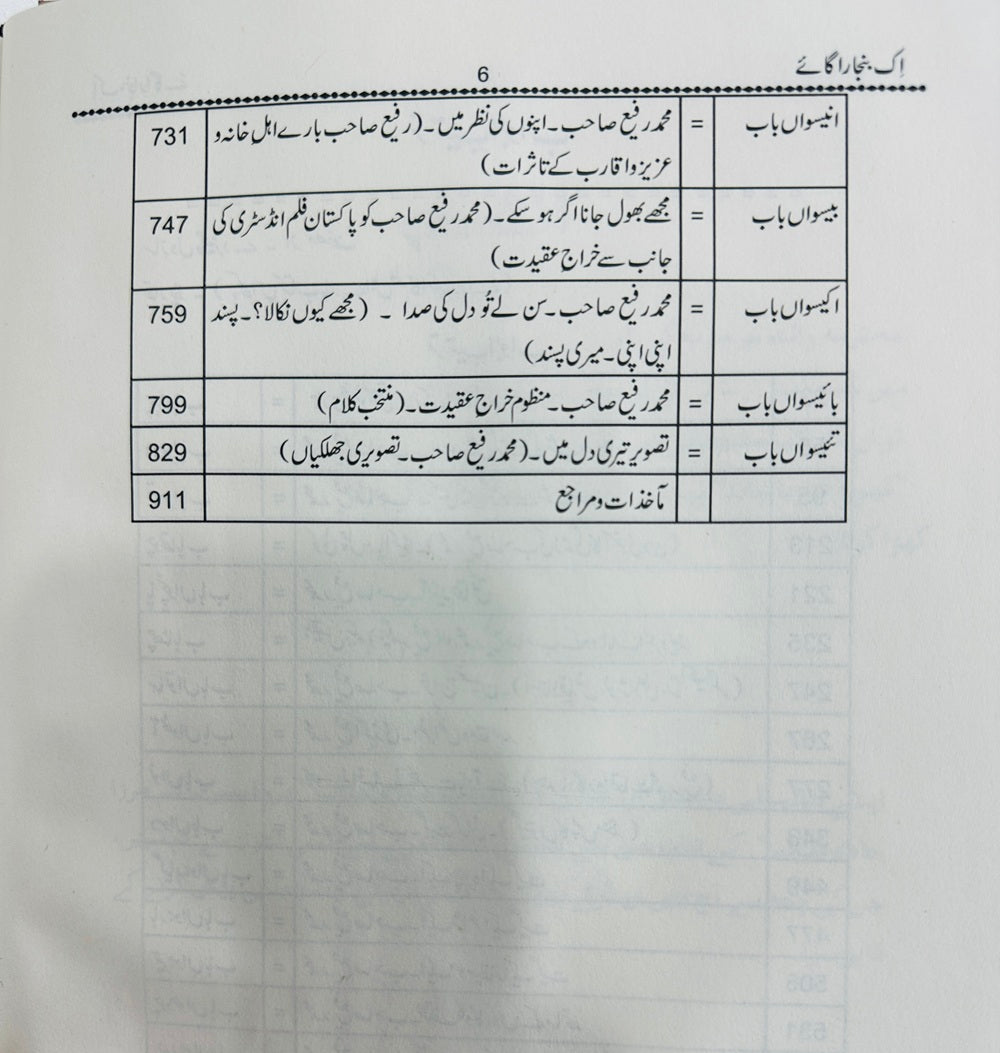 اِک بنجارا گائے
6
انیسواں باب = محمد رفیع صاحب۔ اپنوں کی نظر میں۔ (رفیع صاحب بارے اہلِ خانہ و 731
عزیز و اقارب کے تاثرات)
بیسواں باب = مجھے بھول جانا اگر ہو سکے۔ (محمد رفیع صاحب کو پاکستان فلم انڈسٹری کی 747
جانب سے خراجِ عقیدت)
اکیسواں باب = محمد رفیع صاحب۔ سن لے تُو دل کی صدا ۔ (مجھے کیوں نکالا؟۔ پسند 759
اپنی اپنی۔ میری پسند)
بائیسواں باب = محمد رفیع صاحب۔ منظوم خراجِ عقیدت۔ (منتخب کلام) 799
تئیسواں باب = تصویر تیری دل میں۔ (محمد رفیع صاحب۔ تصویری جھلکیاں) 829
مآخذات و مراجع 911